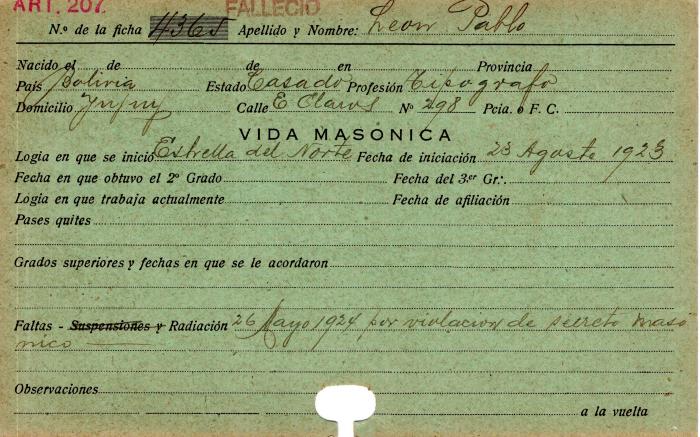 ART. 207. FALLECIO
N.º de la ficha 4365 Apellido y Nombre: Leon Pablo
Nacido el de de en Provincia
País Bolivia Estado Casado Profesión Tipografo
Domicilio Jujuy Calle E Claros Nº 298 Pcia. ó F. C.
VIDA MASONICA
Logia en que se inició Estrella del Norte Fecha de iniciación 23 Agosto 1923
Fecha en que obtuvo el 2º Grado Fecha del 3.er Gr∴
Logia en que trabaja actualmente Fecha de afiliación
Pases quites
Grados superiores y fechas en que se le acordaron
Faltas - Suspensiones y Radiación 26 Mayo 1924 por violacion de secreto maso
nico
Observaciones
a la vuelta